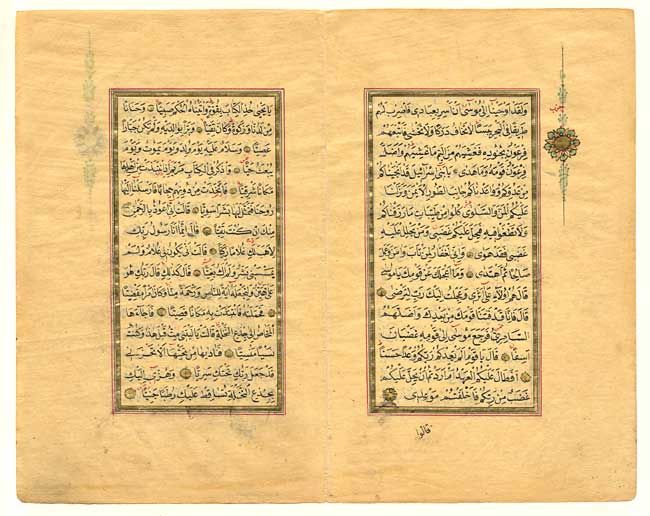 حزب
وَلَقَدْ اَوْحَيْنَا اِلٰى مُوسٰى اَنْ اَسْرِ بِعِبَادِى فَاضْرِبْ لَهُمْ
طَرِيقًا فِى الْبَحْرِ يَبَسًا لَا تَخَافُ دَرَكًا وَلَا تَخْشٰى فَاَتْبَعَهُمْ
فِرْعَوْنُ بِجُنُودِهِ فَغَشِيَهُمْ مِنَ الْيَمِّ مَا غَشِيَهُمْ وَاَضَلَّ
فِرْعَوْنُ قَوْمَهُ وَمَا هَدٰى يَا بَنِى اِسْرَائِيلَ قَدْ اَنْجَيْنَاكُمْ
مِنْ عَدُوِّكُمْ وَوَاعَدْنَاكُمْ جَانِبَ الطُّورِ الْاَيْمَنَ وَنَزَّلْنَا
عَلَيْكُمُ الْمَنَّ وَالسَّلْوٰى كُلُوا مِنْ طَيِّبَاتِ مَا رَزَقْنَاكُمْ
وَلَا تَطْغَوْا فِيهِ فَيَحِلَّ عَلَيْكُمْ غَضَبِى وَمَنْ يَحْلِلْ عَلَيْهِ
غَضَبِى فَقَدْ هَوٰى وَاِنِّى لَغَفَّارٌ لِمَنْ تَابَ وَاٰمَنَ وَعَمِلَ
صَالِحًا ثُمَّ اهْتَدٰى وَمَا اَعْجَلَكَ عَنْ قَوْمِكَ يَا مُوسٰى
قَالَ هُمْ اُولَاءِ عَلٰى اَثَرِى وَعَجِلْتُ اِلَيْكَ رَبِّ لِتَرْضٰى
قَالَ فَاِنَّا قَدْ فَتَنَّا قَوْمَكَ مِنْ بَعْدِكَ وَاَضَلَّهُمُ
السَّامِرِىُّ فَرَجَعَ مُوسٰى اِلٰى قَوْمِهِ غَضْبَانَ
اَسِفًا قَالَ يَا قَوْمِ اَلَمْ يَعِدْكُمْ رَبُّكُمْ وَعْدًا حَسَنًا
اَفَطَالَ عَلَيْكُمُ الْعَهْدُ اَمْ اَرَدْتُمْ اَنْ يَحِلَّ عَلَيْكُمْ
غَضَبٌ مِنْ رَبِّكُمْ فَاَخْلَفْتُمْ مَوْعِدِى
قالوا
يَا يَحْيٰى خُذِ الْكِتَابَ بِقُوَّةٍ وَاٰتَيْنَاهُ الْحُكْمَ صَبِيًّا وَحَنَانًا
مِنْ لَدُنَّا وَزَكٰوةً وَكَانَ تَقِيًّا وَبَرًّا بِوَالِدَيْهِ وَلَمْ يَكُنْ جَبَّارًا
عَصِيًّا وَسَلَامٌ عَلَيْهِ يَوْمَ وُلِدَ وَيَوْمَ يَمُوتُ وَيَوْمَ
يُبْعَثُ حَيًّا وَاذْكُرْ فِى الْكِتَابِ مَرْيَمَ اِذِ انْتَبَذَتْ مِنْ اَهْلِهَا
مَكَانًا شَرْقِيًّا فَاتَّخَذَتْ مِنْ دُونِهِمْ حِجَابًا فَاَرْسَلْنَا اِلَيْهَا
رُوحَنَا فَتَمَثَّلَ لَهَا بَشَرًا سَوِيًّا قَالَتْ اِنِّى اَعُوذُ بِالرَّحْمٰنِ
مِنْكَ اِنْ كُنْتَ تَقِيًّا قَالَ اِنَّمَا اَنَا رَسُولُ رَبِّكِ
لِاَهَبَ لَكِ غُلَامًا زَكِيًّا قَالَتْ اَنّٰى يَكُونُ لِى غُلَامٌ وَلَمْ
يَمْسَسْنِى بَشَرٌ وَلَمْ اَكُ بَغِيًّا قَالَ كَذٰلِكِ قَالَ رَبُّكِ هُوَ
عَلَىَّ هَيِّنٌ وَلِنَجْعَلَهُ اٰيَةً لِلنَّاسِ وَرَحْمَةً مِنَّا وَكَانَ اَمْرًا مَقْضِيًّا
فَحَمَلَتْهُ فَانْتَبَذَتْ بِهِ مَكَانًا قَصِيًّا فَاَجَاءَهَا
الْمَخَاضُ اِلٰى جِذْعِ النَّخْلَةِ قَالَتْ يَا لَيْتَنِى مِتُّ قَبْلَ هٰذَا وَكُنْتُ
نَسْيًا مَنْسِيًّا فَنَادٰيهَا مِنْ تَحْتِهَا اَلَّا تَحْزَنِى
قَدْ جَعَلَ رَبُّكِ تَحْتَكِ سَرِيًّا وَهُزِّى اِلَيْكِ
بِجِذْعِ النَّخْلَةِ تُسَاقِطْ عَلَيْكِ رُطَبًا جَنِيًّا